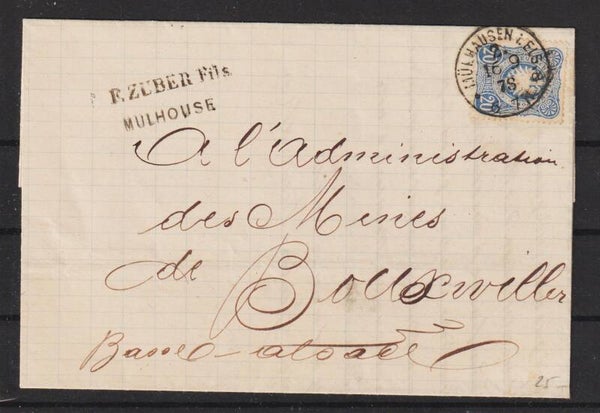 F. ZUBER Fils
MULHOUSE
MÜLHAUSEN i. ELS.
20
20
A l'Administration
des Mines
de Bouxwiller
Basse-alsace
25.-